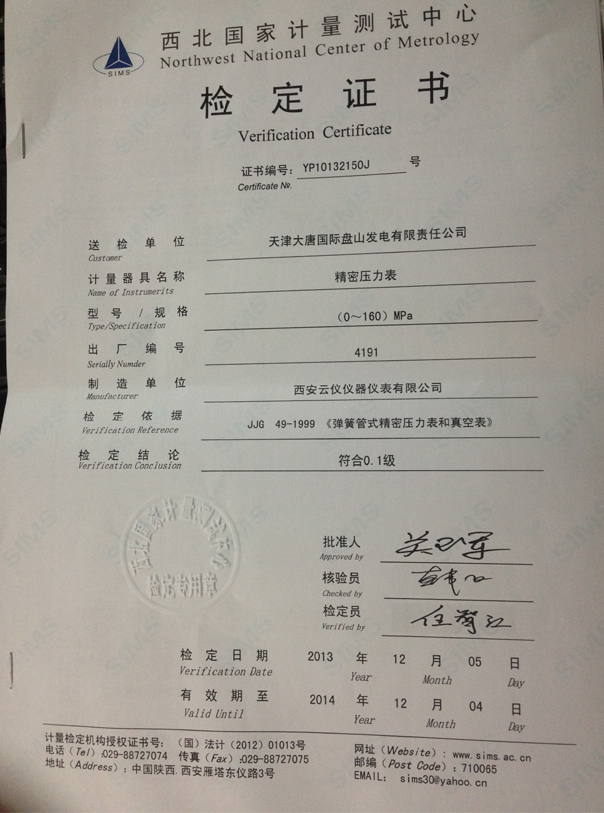 西北国家计量测试中心
SIMS
Northwest National Center of Metrology
检定证书
Verification Certificate
证书编号: YP10132150J 号
Certificate №.
送检单位 天津大唐国际盘山发电有限责任公司
Customer
计量器具名称 精密压力表
Name of Instruments
型号/规格 (0~160)MPa
Type/Specification
出厂编号 4191
Serially Numder
制造单位 西安云仪仪器仪表有限公司
Manufacturer
检定依据 JJG 49-1999 《弹簧管式精密压力表和真空表》
Verification Reference
检定结论 符合0.1级
Verification Conclusion
西北国家计量测试中心
检定专用章
批准人
Approved by
核验员
Checked by
检定员
Verified by
检定日期 2013 年 12 月 05 日
Verification Date Year Month Day
有效期至 2014 年 12 月 04 日
Valid Until Year Month Day
计量检定机构授权证书号: (国)法计(2012)01013号
网址(Website): www.sims.ac.cn
电话(Tel):029-88727074 传真(Fax):029-88727075
邮编(Post Code):710065
地址(Address):中国陕西.西安雁塔东仪路3号
EMAIL: sims30@yahoo.cn